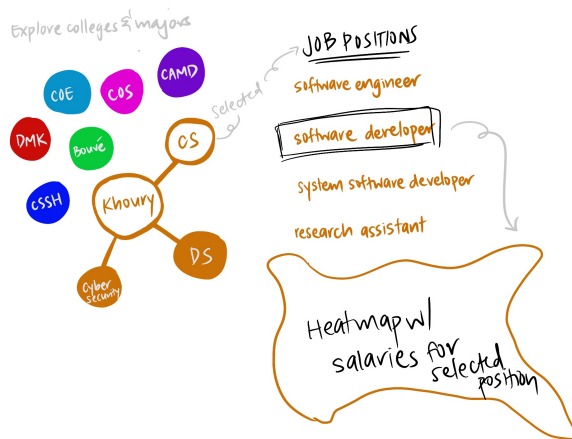 Explore colleges & majors
COE
COS
CAMD
DMK
Bouvé
CS
CSSH
Khoury
DS
Cyber
security
selected
JOB POSITIONS
software engineer
software developer
system software developer
research assistant
Heatmap w/
salaries for
selected
position